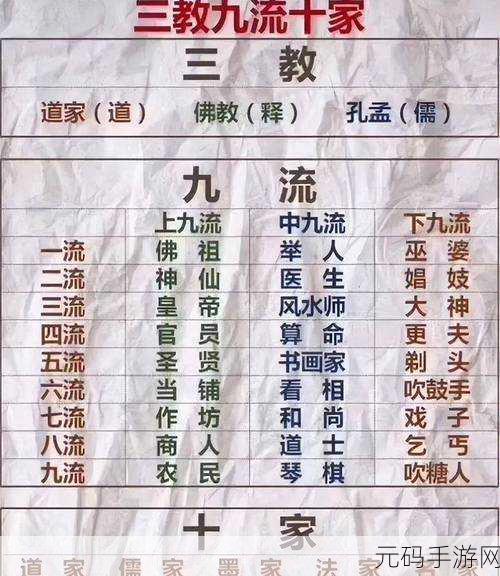 三教九流十家
三 教
道家（道） 佛教（释） 孔孟（儒）
九 流
上九流 中九流 下九流
一流 佛祖 举人 巫婆
二流 神仙 医生 娼妓
三流 皇帝 风水师 大神
四流 官员 算命 更夫
五流 圣贤 书画家 剃头
六流 当铺 看相 吹鼓手
七流 作坊 和尚 戏子
八流 商人 道士 乞丐
九流 农民 琴棋 吹糖人
十 家
道家 儒家 墨家 法家
元码手游网